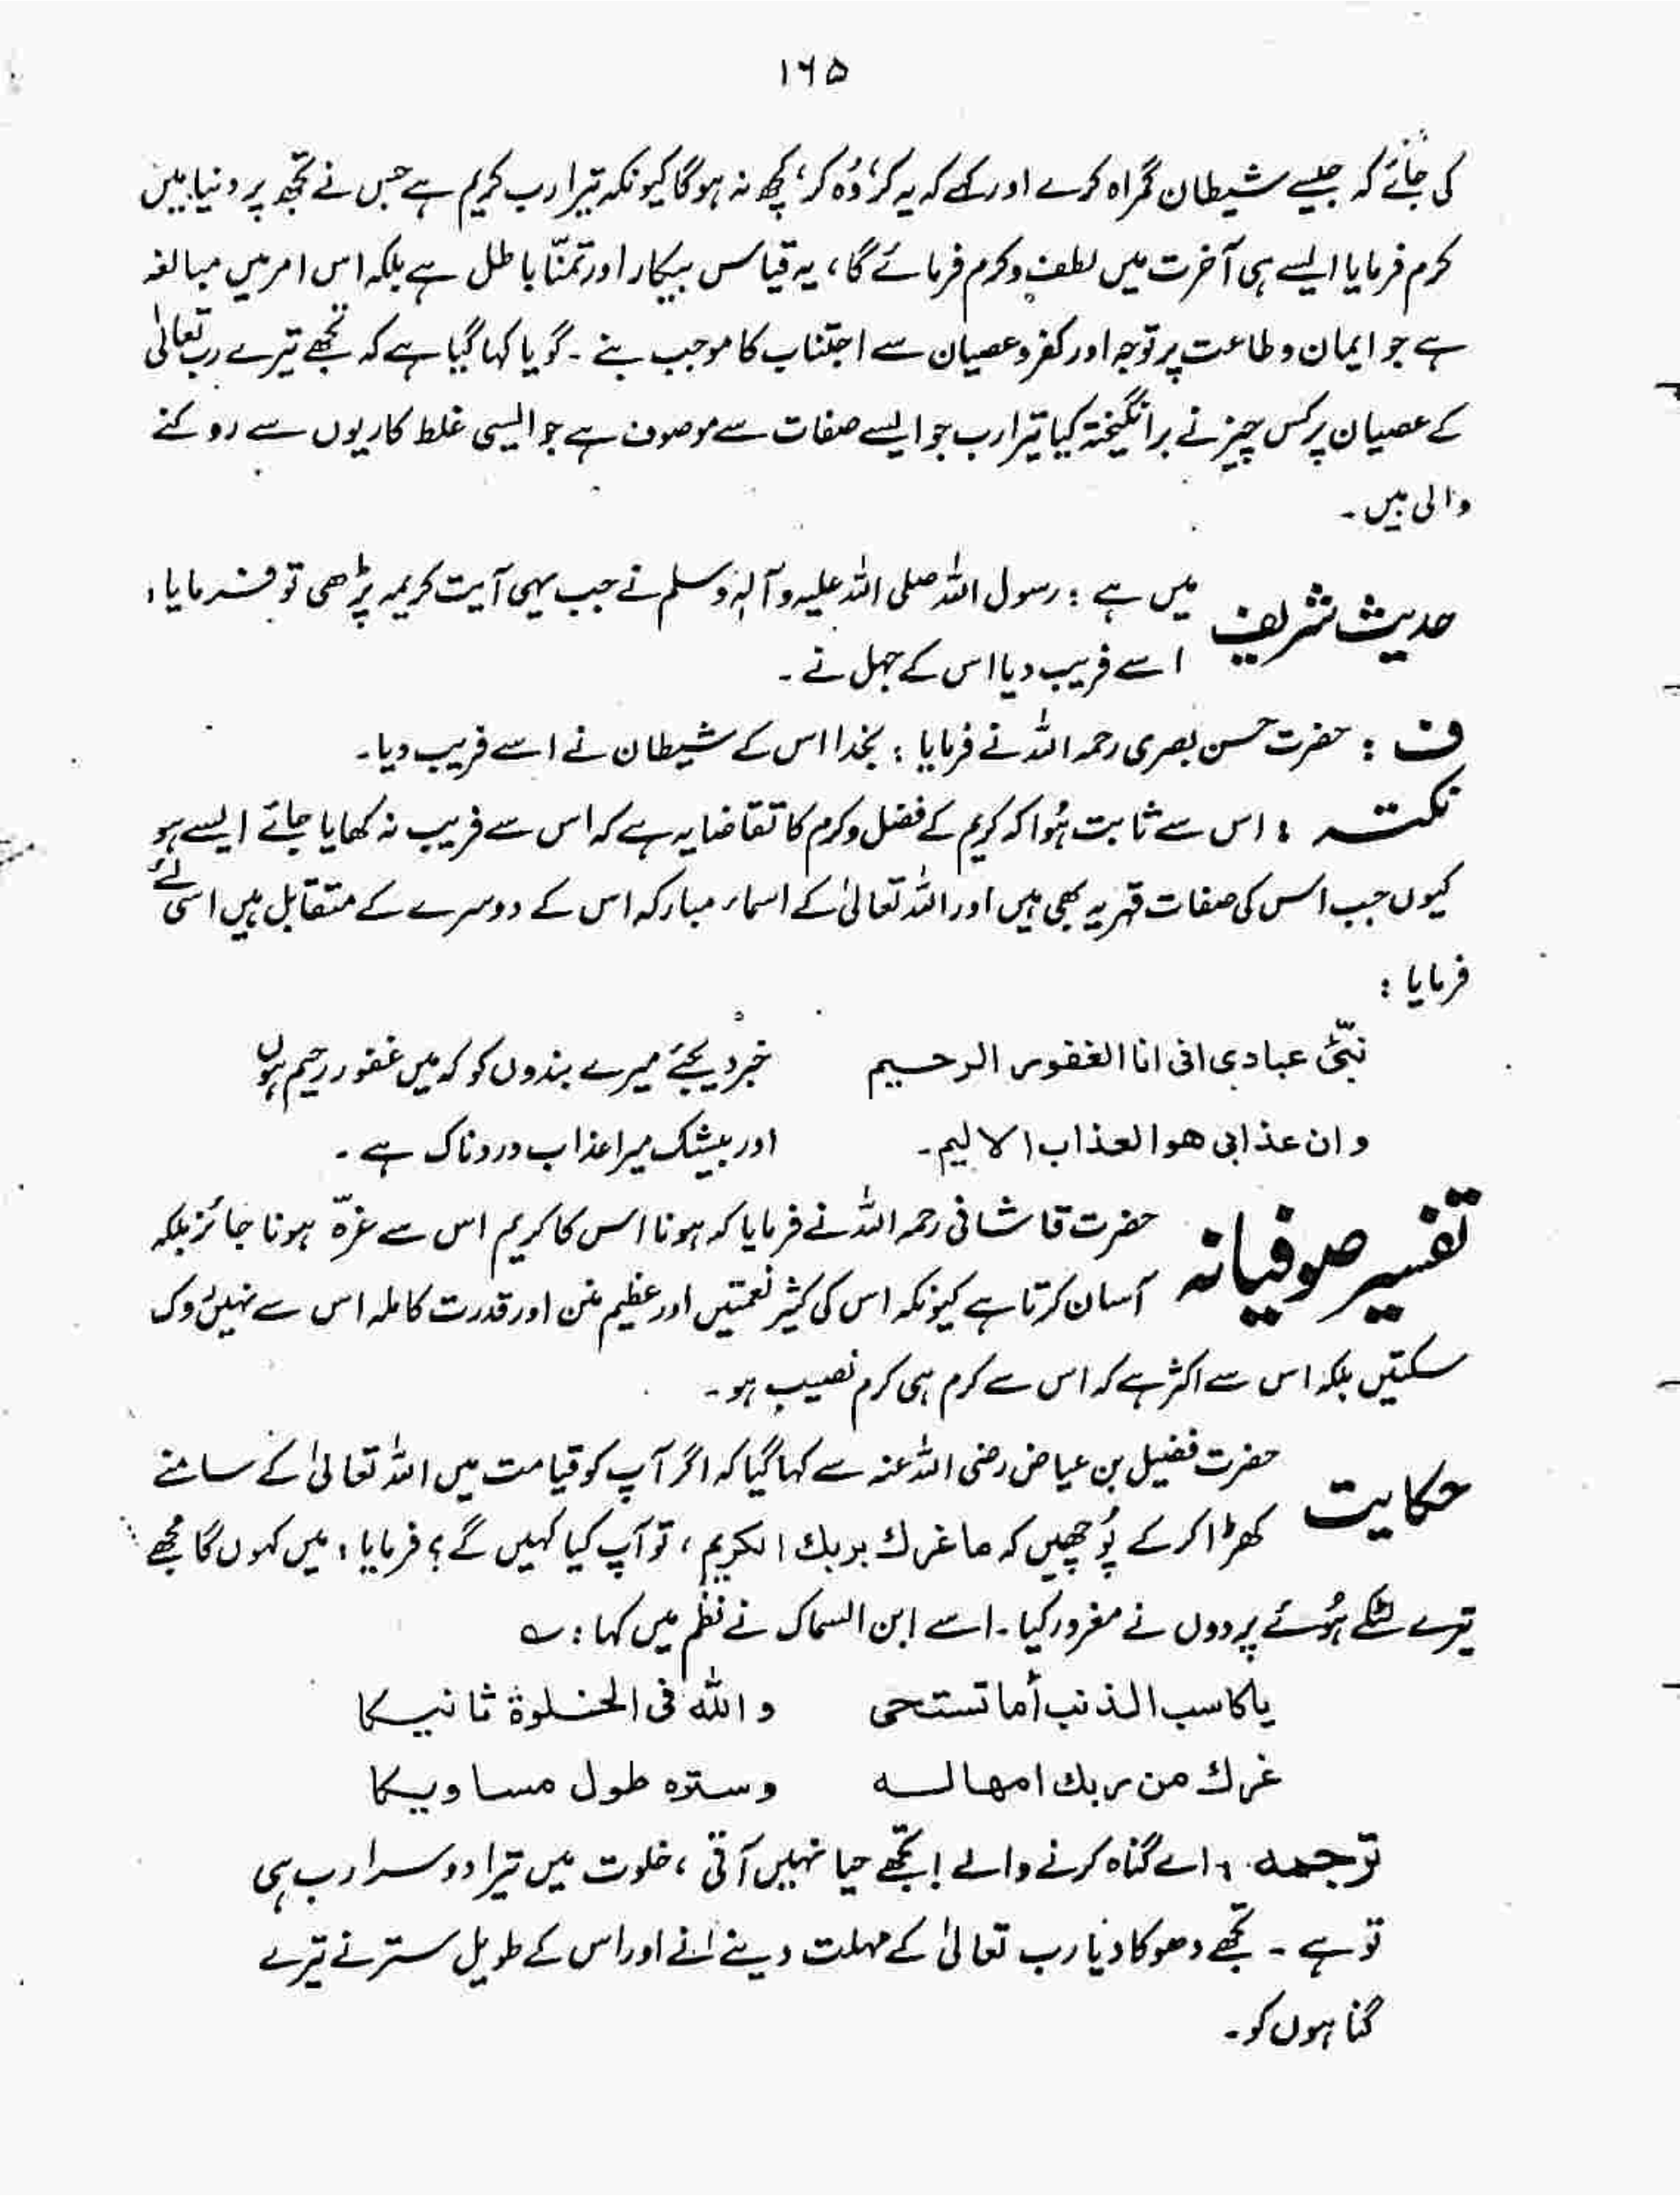 ۱۶۵
کی جائے کہ جیسے شیطان گمراہ کرے اور کہے کہ یہ کر، وُہ کر، کچھ نہ ہوگا کیونکہ تیرا رب کریم ہے جس نے تجھ پر دنیا میں
کرم فرمایا ایسے ہی آخرت میں لطف و کرم فرمائے گا، یہ قیاس بیکار اور تمنّا باطل ہے بلکہ اس امر میں مبالغہ
ہے جو ایمان و طاعت پر توجہ اور کفر و عصیان سے اجتناب کا موجب بنے ۔ گویا کہا گیا ہے کہ تجھے تیرے رب تعالیٰ
کے عصیان پر کس چیز نے برانگیختہ کیا تیرا رب جو ایسے صفات سے موصوف ہے جو ایسی غلط کاریوں سے روکنے
والی ہیں ۔
حدیث شریف میں ہے : رسول اللہ صلی اللہ علیہ وآلہٖ وسلم نے جب یہی آیت کریمہ پڑھی تو فرمایا :
اسے فریب دیا اس کے جہل نے ۔
ف : حضرت حسن بصری رحمہ اللہ نے فرمایا : بخدا اس کے شیطان نے اسے فریب دیا۔
نکتہ : اس سے ثابت ہُوا کہ کریم کے فضل و کرم کا تقاضا یہ ہے کہ اس سے فریب نہ کھایا جائے ایسے ہو
کیوں جب اس کی صفات قہریہ بھی ہیں اور اللہ تعالیٰ کے اسماء مبارکہ اس کے دوسرے کے متقابل ہیں اسی لئے
فرمایا :
نبّئ عبادی انی انا الغفور الرحیم خبر دیجئے میرے بندوں کو کہ میں غفور رحیم ہوں
و ان عذابی ھو العذاب الالیم۔ اور بیشک میرا عذاب دردناک ہے ۔
تفسیر صوفیانہ حضرت قاشانی رحمہ اللہ نے فرمایا کہ ہونا اس کا کریم اس سے غرّہ ہونا جائز بلکہ
آسان کرتا ہے کیونکہ اس کی کثیر نعمتیں اور عظیم منن اور قدرت کاملہ اس سے نہیں روک
سکتیں بلکہ اس سے اکثر ہے کہ اس سے کرم ہی کرم نصیب ہو ۔
حکایت حضرت فضیل بن عیاض رضی اللہ عنہ سے کہا گیا کہ اگر آپ کو قیامت میں اللہ تعالیٰ کے سامنے
کھڑا کر کے پُوچھیں کہ ما غرك بربك الكریم، تو آپ کیا کہیں گے ؟ فرمایا : میں کہوں گا مجھے
تیرے لٹکے ہُوئے پردوں نے مغرور کیا ۔ اسے ابن السماک نے نظم میں کہا : ؎
یا کاسب الذنب أما تستحی و اللہ فی الخلوۃ ثانیکا
غرك من ربك امھالہ و سترہ طول مساویکا
ترجمہ : اے گناہ کرنے والے ! تجھے حیا نہیں آتی ، خلوت میں تیرا دوسرا رب ہی
تو ہے ۔ تجھے دھوکا دیا رب تعالیٰ کے مہلت دینے نے اور اس کے طویل ستر نے تیرے
گناہوں کو ۔